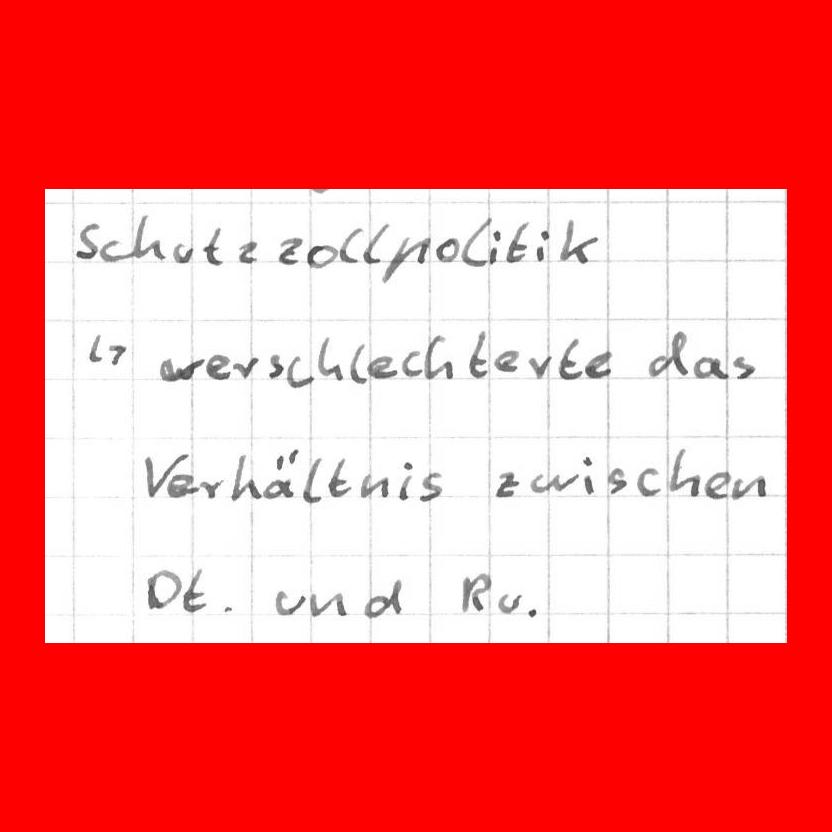 Schutzzollpolitik
↳ verschlechterte das
Verhältnis zwischen
Dt. und Ru.